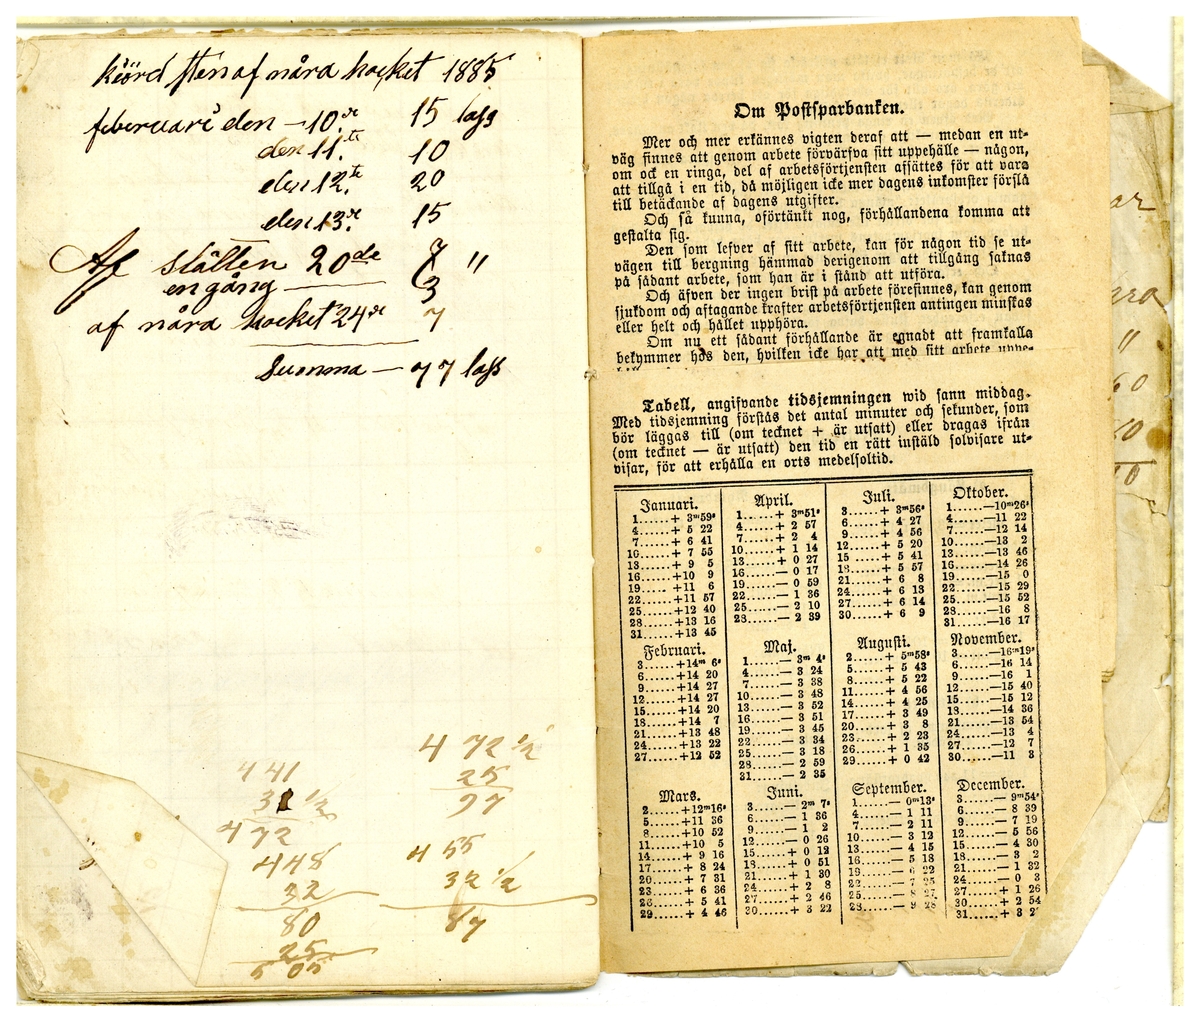 kiörd sten af nåra hocket 1885
februari den — 10.de 15 lass
den 11.te 10
den 12.te 20
den 13.de 15
Af slätten 20de 7 "
en gång — 3
af nåra hocket 24de 7
Summa — 77 lass
4 72 1/2
25
97
4 41
31 1/2
4 72
4 48
32
80
25
5 05
4 55
32 1/2
87
Om Postsparbanken.
Mer och mer erkännes vigten deraf att — medan en ut-
väg finnes att genom arbete förvärfva sitt uppehälle — någon,
om ock en ringa, del af arbetsförtjensten afsättes för att vara
att tillgå i en tid, då möjligen icke mer dagens inkomster förslå
till betäckande af dagens utgifter.
Och så kunna, oförtänkt nog, förhållandena komma att
gestalta sig.
Den som lefver af sitt arbete, kan för någon tid se ut-
vägen till bergning hämmad derigenom att tillgång saknas
på sådant arbete, som han är i stånd att utföra.
Och äfven der ingen brist på arbete förefinnes, kan genom
sjukdom och aftagande krafter arbetsförtjensten antingen minskas
eller helt och hållet upphöra.
Om nu ett sådant förhållande är egnadt att framkalla
bekymmer hos den, hvilken icke har att med sitt arbete uppe-
Tabell, angifvande tidsjemningen wid sann middag.
Med tidsjemning förstås det antal minuter och sekunder, som
bör läggas till (om tecknet + är utsatt) eller dragas ifrån
(om tecknet — är utsatt) den tid en rätt instäld solvisare ut-
visar, för att erhålla en orts medelsoltid.
Januari.
1......+ 3m59s
4......+ 5 22
7......+ 6 41
10......+ 7 55
13......+ 9 5
16......+10 9
19......+11 6
22......+11 57
25......+12 40
28......+13 16
31......+13 45
Februari.
3......+14m 6s
6......+14 20
9......+14 27
12......+14 27
15......+14 20
18......+14 7
21......+13 48
24......+13 22
27......+12 52
Mars.
2......+12m16s
5......+11 36
8......+10 52
11......+10 5
14......+ 9 16
17......+ 8 24
20......+ 7 31
23......+ 6 36
26......+ 5 41
29......+ 4 46
April.
1......+ 3m51s
4......+ 2 57
7......+ 2 4
10......+ 1 14
13......+ 0 27
16......— 0 17
19......— 0 59
22......— 1 36
25......— 2 10
28......— 2 39
Maj.
1......— 3m 4s
4......— 3 24
7......— 3 38
10......— 3 48
13......— 3 52
16......— 3 51
19......— 3 45
22......— 3 34
25......— 3 18
28......— 2 59
31......— 2 35
Juni.
3......— 2m 7s
6......— 1 36
9......— 1 2
12......— 0 26
15......+ 0 12
18......+ 0 51
21......+ 1 30
24......+ 2 8
27......+ 2 46
30......+ 3 22
Juli.
3......+ 3m56s
6......+ 4 27
9......+ 4 56
12......+ 5 20
15......+ 5 41
18......+ 5 57
21......+ 6 8
24......+ 6 13
27......+ 6 14
30......+ 6 9
Augusti.
2......+ 5m58s
5......+ 5 43
8......+ 5 22
11......+ 4 56
14......+ 4 25
17......+ 3 49
20......+ 3 8
23......+ 2 23
26......+ 1 35
29......+ 0 42
September.
1......— 0m13s
4......— 1 11
7......— 2 11
10......— 3 12
13......— 4 15
16......— 5 18
19......— 6 22
22......— 7 25
25......— 8 27
28......— 9 28
Oktober.
1......—10m26s
4......—11 22
7......—12 14
10......—13 2
13......—13 46
16......—14 26
19......—15 0
22......—15 29
25......—15 52
28......—16 8
31......—16 17
November.
3......—16m19s
6......—16 14
9......—16 1
12......—15 40
15......—15 12
18......—14 36
21......—13 54
24......—13 4
27......—12 7
30......—11 3
December.
3......— 9m54s
6......— 8 39
9......— 7 19
12......— 5 56
15......— 4 30
18......— 3 2
21......— 1 32
24......— 0 3
27......+ 1 26
30......+ 2 54
31......+ 3 2
ar
ara
"
60
10
10